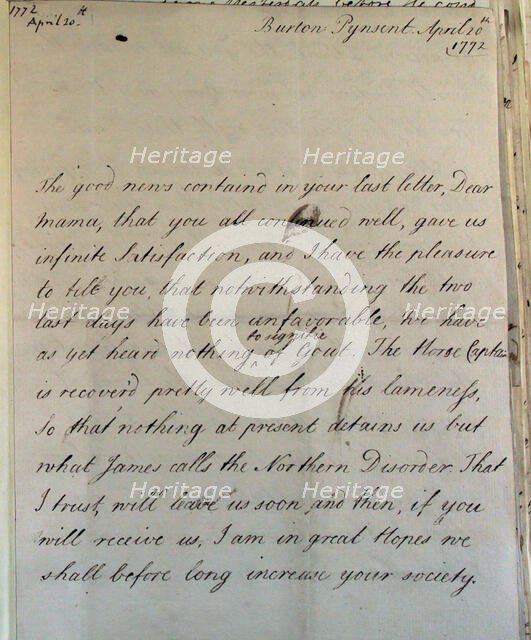 1772
April 20.th
Burton Pynsent April 20th
1772
The good news containd in your last letter, Dear
Mama, that you all continued well, gave us
infinite Satisfaction, and I have the pleasure
to tell you, that notwithstanding the two
last days have been unfavorable, we have
to signifie
as yet heard nothing of Gout. The Horse Captain
is recoverd pretty well from his lameness,
So that nothing at present detains us but
what James calls the Northern Disorder. That
I trust, will leave us soon, and then, if you
will receive us, I am in great Hopes we
shall before long increase your society.
Heritage Heritage
Heritage Heritage
Heritage Heritage
Heritage Heritage
C